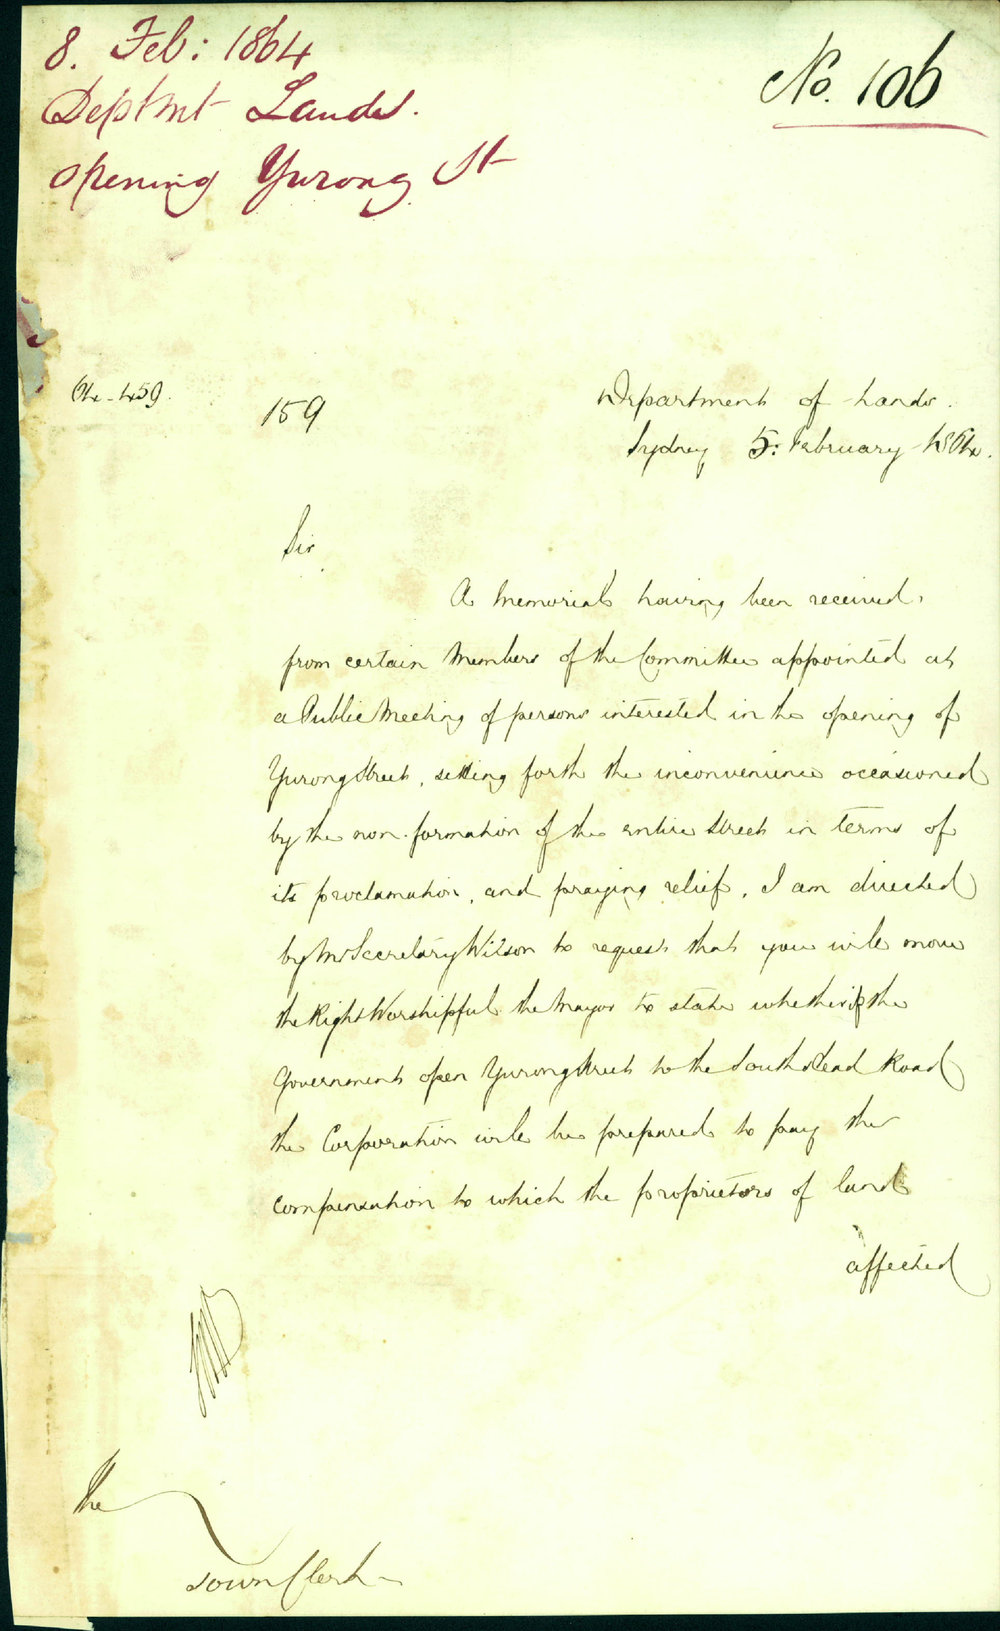 8. Feb: 1864
Deptmt Lands.
opening Yurong St
No. 106
64-459.
159
Department of Lands.
Sydney 5: February 1864.
Sir
A Memorial having been received,
from certain Members of the Committee appointed at
a Public Meeting of persons interested in the opening of
Yurong Street, setting forth the inconvenience occasioned
by the non-formation of the entire Street in terms of
its proclamation, and praying relief, I am directed
by Mr Secretary Wilson to request that you will move
the Right Worshipful the Mayor to state whether if the
Government open Yurong Street to the South Head Road
the Corporation will be prepared to pay the
compensation to which the proprietors of land
affected
The
Town Clerk